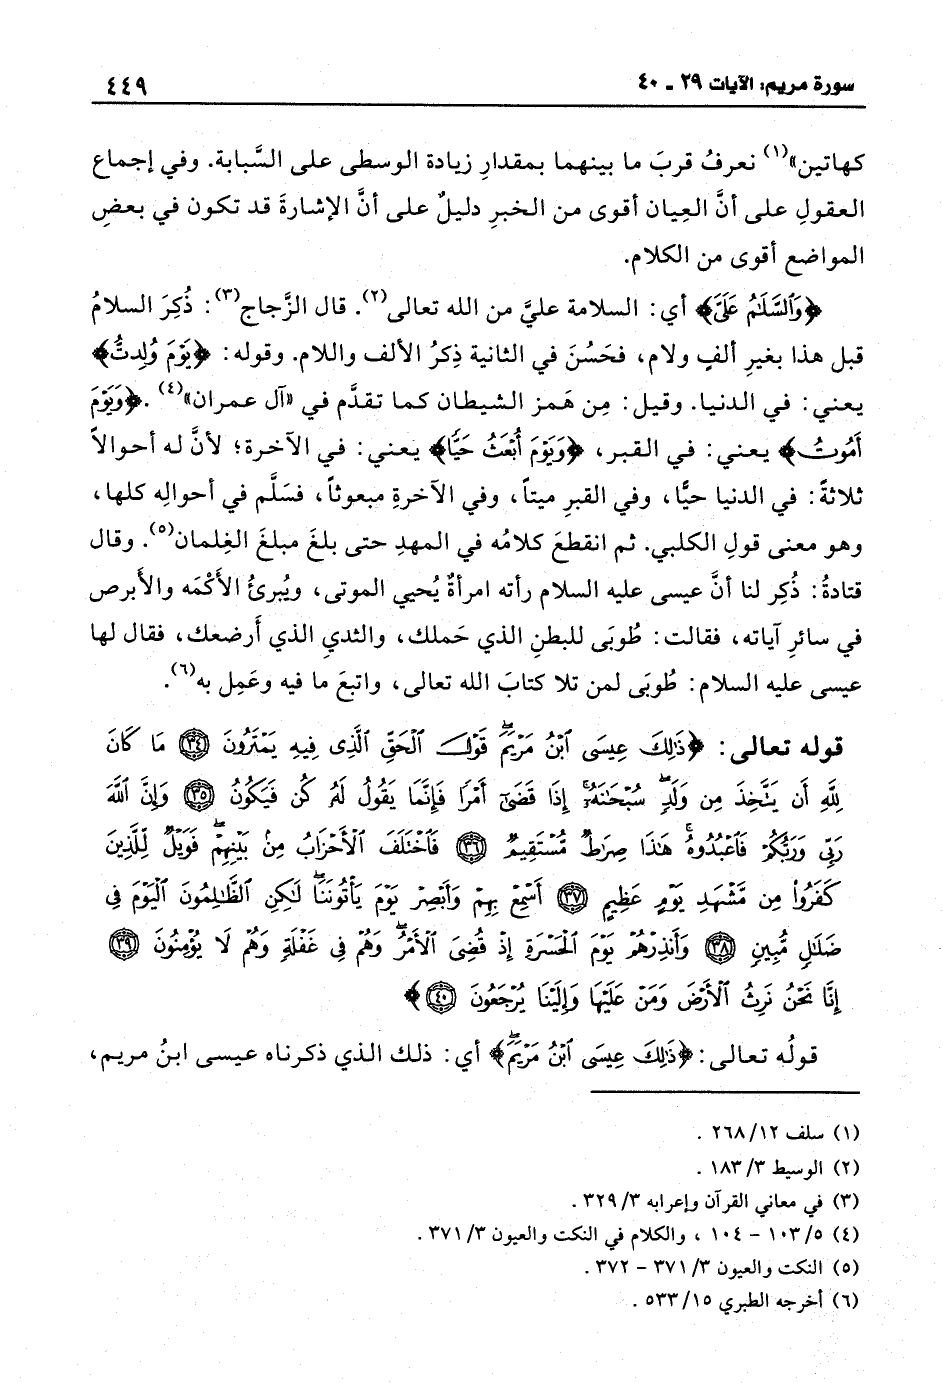 سورة مريم: الآيات ٢٩ ـ ٤٠
٤٤٩
كهاتين»(١) نعرفُ قربَ ما بينهما بمقدارِ زيادة الوسطى على السَّبابة. وفي إجماع
العقولِ على أنَّ العِيان أقوى من الخبرِ دليلٌ على أنَّ الإشارةَ قد تكون في بعضِ
المواضع أقوى من الكلام.
﴿وَٱلسَّلَٰمُ عَلَيَّ﴾ أي: السلامة عليَّ من الله تعالى(٢). قال الزَّجاج(٣): ذُكِرَ السلامُ
قبل هذا بغيرِ ألفٍ ولام، فحَسُنَ في الثانية ذِكرُ الألف واللام. وقوله: ﴿يَوْمَ وُلِدتُّ﴾
يعني: في الدنيا. وقيل: مِن هَمز الشيطان كما تقدَّم في «آل عمران»(٤). ﴿وَيَوْمَ
أَمُوتُ﴾ يعني: في القبر، ﴿وَيَوْمَ أُبْعَثُ حَيًّا﴾ يعني: في الآخرة؛ لأنَّ له أحوالاً
ثلاثةً: في الدنيا حيًّا، وفي القبرِ ميتاً، وفي الآخرةِ مبعوثاً، فسَلَّم في أحوالِه كلها،
وهو معنى قولِ الكلبي. ثم انقطعَ كلامُه في المهدِ حتى بلغَ مبلغَ الغِلمان(٥). وقال
قتادةُ: ذُكِر لنا أنَّ عيسى عليه السلام رأته امرأةٌ يُحيي الموتى، ويُبرئُ الأَكْمَه والأبرص
في سائرِ آياته، فقالت: طُوبَى للبطنِ الذي حَملك، والثديِ الذي أَرضعك، فقال لها
عيسى عليه السلام: طُوبَى لمن تلا كتابَ الله تعالى، واتبعَ ما فيه وعَمِل به(٦).
قوله تعالى: ﴿ذَٰلِكَ عِيسَى ٱبْنُ مَرْيَمَ ۚ قَوْلَ ٱلْحَقِّ ٱلَّذِى فِيهِ يَمْتَرُونَ ٣٤ مَا كَانَ
لِلَّهِ أَن يَتَّخِذَ مِن وَلَدٍ ۖ سُبْحَٰنَهُۥٓ ۚ إِذَا قَضَىٰٓ أَمْرًا فَإِنَّمَا يَقُولُ لَهُۥ كُن فَيَكُونُ ٣٥ وَإِنَّ ٱللَّهَ
رَبِّى وَرَبُّكُمْ فَٱعْبُدُوهُ ۚ هَٰذَا صِرَٰطٌ مُّسْتَقِيمٌ ٣٦ فَٱخْتَلَفَ ٱلْأَحْزَابُ مِنۢ بَيْنِهِمْ ۖ فَوَيْلٌ لِّلَّذِينَ
كَفَرُوا۟ مِن مَّشْهَدِ يَوْمٍ عَظِيمٍ ٣٧ أَسْمِعْ بِهِمْ وَأَبْصِرْ يَوْمَ يَأْتُونَنَا ۖ لَٰكِنِ ٱلظَّٰلِمُونَ ٱلْيَوْمَ فِى
ضَلَٰلٍ مُّبِينٍ ٣٨ وَأَنذِرْهُمْ يَوْمَ ٱلْحَسْرَةِ إِذْ قُضِىَ ٱلْأَمْرُ وَهُمْ فِى غَفْلَةٍ وَهُمْ لَا يُؤْمِنُونَ ٣٩
إِنَّا نَحْنُ نَرِثُ ٱلْأَرْضَ وَمَنْ عَلَيْهَا وَإِلَيْنَا يُرْجَعُونَ ٤٠﴾
قولُه تعالى: ﴿ذَٰلِكَ عِيسَى ٱبْنُ مَرْيَمَ ۚ﴾ أي: ذلك الذي ذكرناه عيسى ابنُ مريم،
(١) سلف ١٢/ ٢٦٨ .
(٢) الوسيط ٣/ ١٨٣ .
(٣) في معاني القرآن وإعرابه ٣/ ٣٢٩ .
(٤) ٥/ ١٠٣ - ١٠٤ ، والكلام في النكت والعيون ٣/ ٣٧١ .
(٥) النكت والعيون ٣/ ٣٧١ - ٣٧٢ .
(٦) أخرجه الطبري ١٥/ ٥٣٣ .